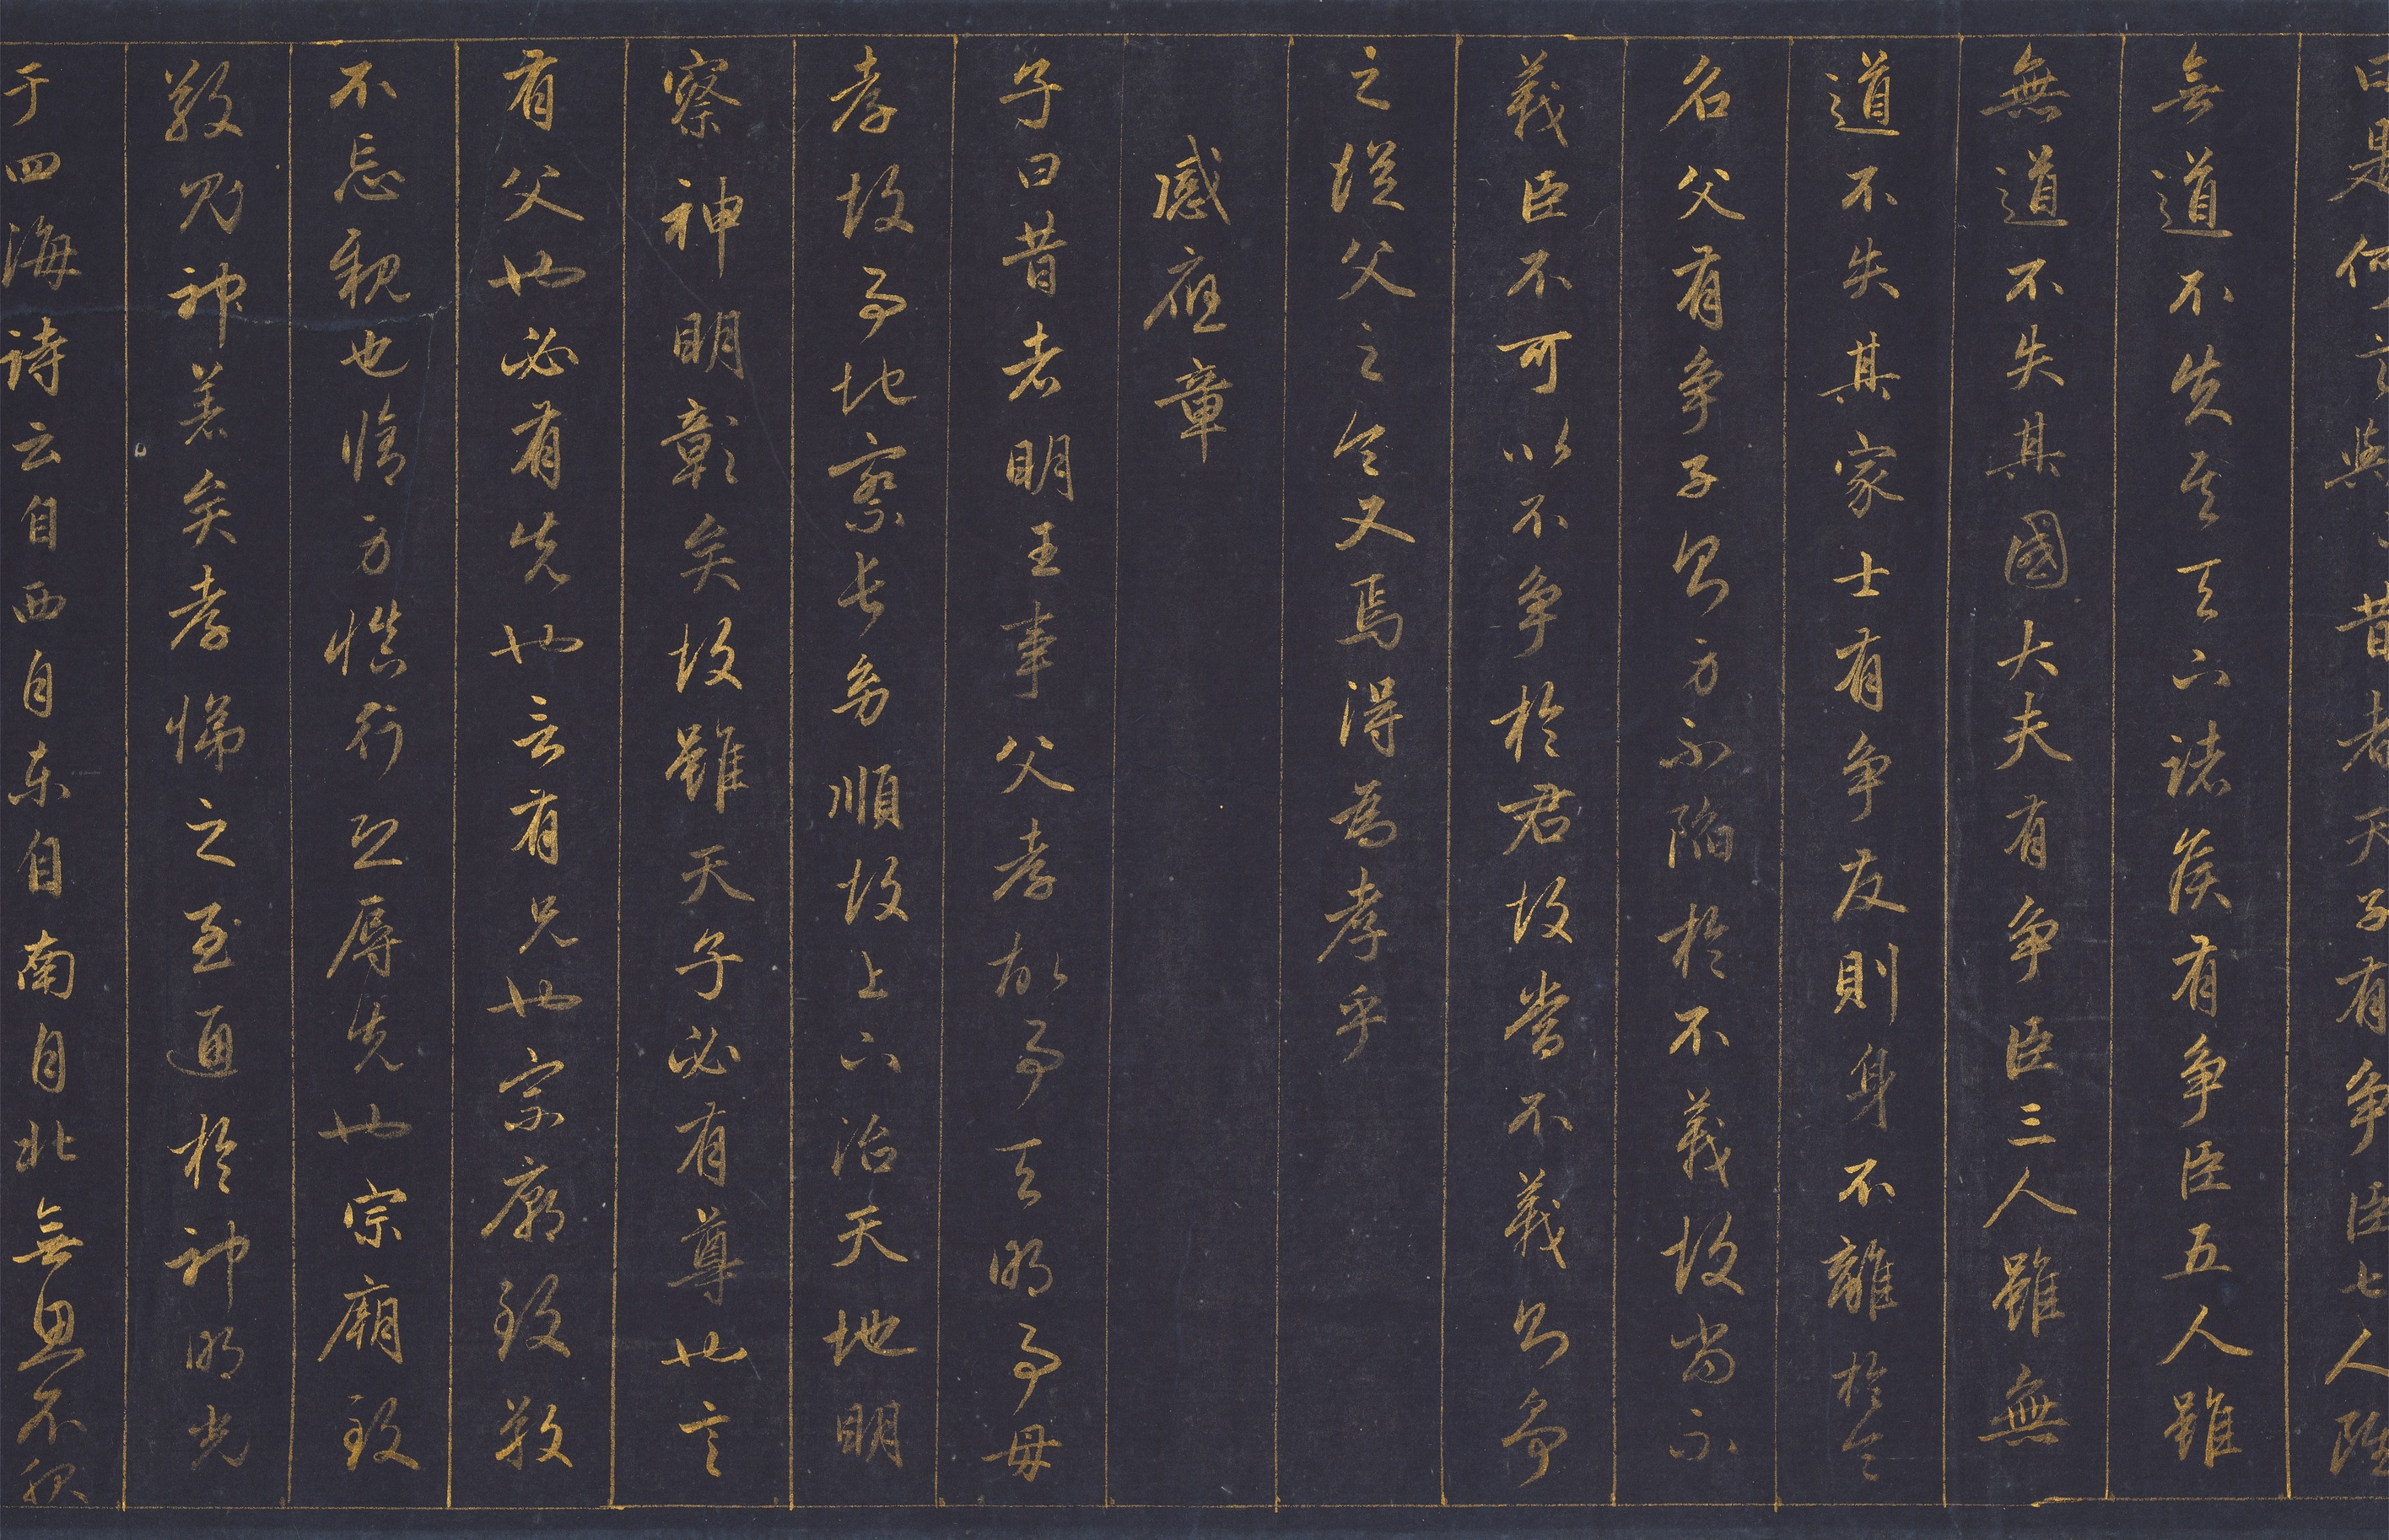 曰是何言與昔者天子有爭臣七人雖
無道不失其天下諸侯有爭臣五人雖
無道不失其國大夫有爭臣三人雖無
道不失其家士有爭友則身不離於令
名父有爭子則身不陷於不義故當不
義臣不可以不爭於君故當不義則爭
之從父之令又焉得為孝乎
感應章
子曰昔者明王事父孝故事天明事母
孝故事地察長幼順故上下治天地明
察神明彰矣故雖天子必有尊也言
有父也必有先也言有兄也宗廟致敬
不忘親也脩身慎行恐辱先也宗廟致
敬則神著矣孝悌之至通於神明光
于四海詩云自西自東自南自北無思不服